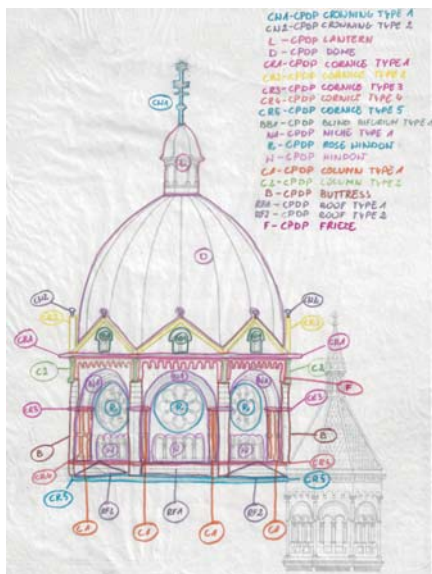 CN1-CPDP CROWNING TYPE 1
CN2-CPDP CROWNING TYPE 2
L - CPDP LANTERN
D - CPDP DOME
CR1-CPDP CORNICE TYPE 1
CR2-CPDP CORNICE TYPE 2
CR3-CPDP CORNICE TYPE 3
CR4-CPDP CORNICE TYPE 4
CR5-CPDP CORNICE TYPE 5
BB1-CPDP BLIND TYPE 1
N1-CPDP NICHE TYPE 1
R-CPDP ROSE WINDOW
W-CPDP WINDOW
C1-CPDP COLUMN TYPE 1
C2-CPDP COLUMN TYPE 2
B-CPDP BUTTRESS
RF1-CPDP ROOF TYPE 1
RF2-CPDP ROOF TYPE 2
F-CPDP FRIEZE
CN1
L
D
CN2 CN2
CR2 CR2
CR1 CR1
C2 C2
N1 N1 N1 F
CR3 R R R CR3
B W W W B
CR4 CR4
CR5 CR5
C1 RF2 C1 RF1 C1 RF2 C1